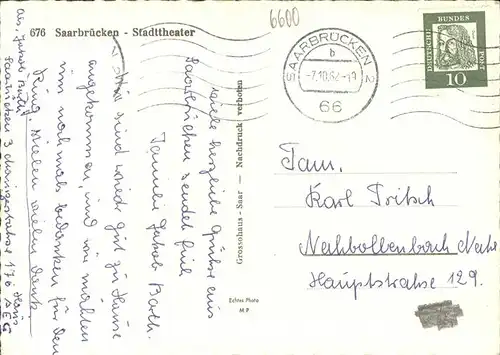 6600
676 Saarbrücken - Stadttheater
SAARBRÜCKEN 2
b
-7.10.62-19
66
DEUTSCHE BUNDESPOST
10
viele herzliche Grüße aus
Saarbrücken sendet Eine
Familie Jakob Barth.
Wir sind wieder gut zu Hause
angekommen, und wir möchten
uns nochmals bedanken für den
Ring. Vielen vielen Dank.
Abs. Jakob Barth
Saarbrücken 3 Mainzerstraße 176
Grossohaus - Saar — Nachdruck verboten
Echtes Photo
M.P
Fam.
Karl Fritsch
Nahbollenbach Nahe
Hauptstrasse 129.